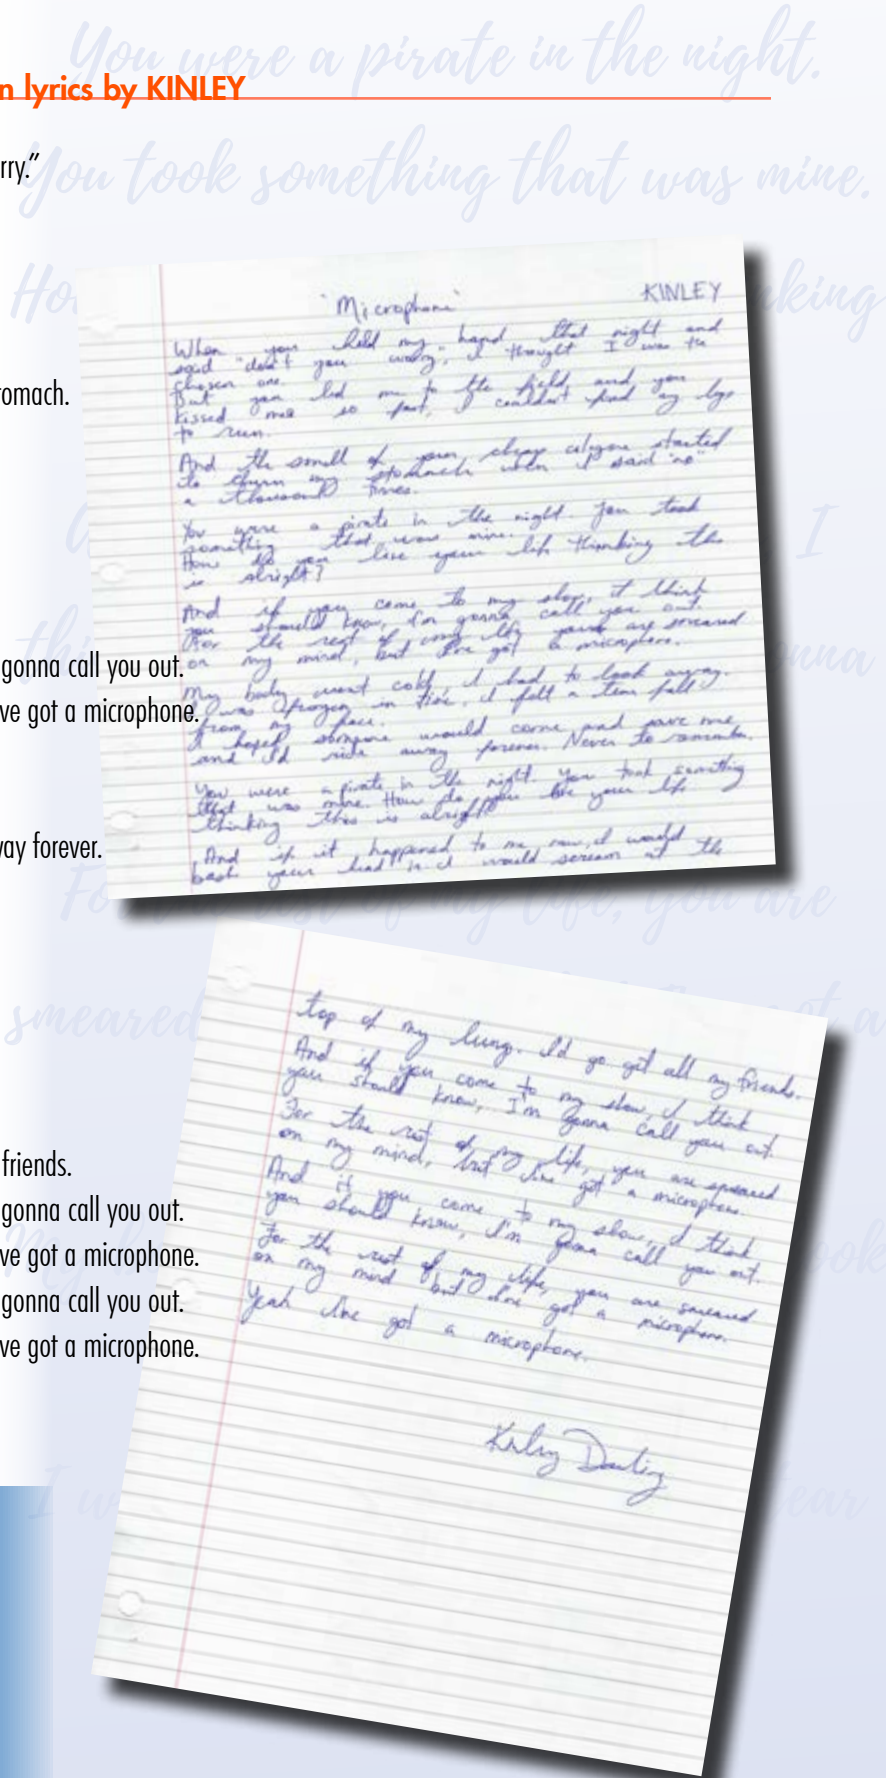 You were a pirate in the night.
n lyrics by KINLEY
rry."
You took something that was mine.
Ho
king
tomach.
I
thi
onna
gonna call you out.
ve got a microphone.
vay forever.
Fo the rest of my life, you are
smeared
ot a
friends.
gonna call you out.
ve got a microphone.
ook
gonna call you out.
ve got a microphone.
I w
ear
"Microphone" KINLEY
When you held my hand that night and
said "don't you worry," I thought I was the
chosen one.
But you led me to the field, and you
kissed me so fast, I couldn't find my legs
to run.
And the smell of your cheap cologne started
to churn my stomach when I said "no"
a thousand times.
You were a pirate in the night. You took
something that was mine.
How do you live your life thinking this
is alright?
And if you come to my show, I think
you should know, I'm gonna call you out.
For the rest of my life you are smeared
on my mind, but I've got a microphone.
My body went cold, I had to look away.
I was frozen in time, I felt a tear fall
from my face.
I hoped someone would come and save me
and I'd ride away forever. Never to remember.
You were a pirate in the night. You took something
that was mine. How do you live your life
thinking this is alright?
And if it happened to me now, I would
bash your head in. I would scream at the
top of my lung. I'd go get all my friends.
And if you come to my show, I think
you should know, I'm gonna call you out.
For the rest of my life, you are smeared
on my mind, but I've got a microphone.
And if you come to my show, I think
you should know, I'm gonna call you out.
For the rest of my life, you are smeared
on my mind but I've got a microphone.
Yeah I've got a microphone.
Kinley Dowling